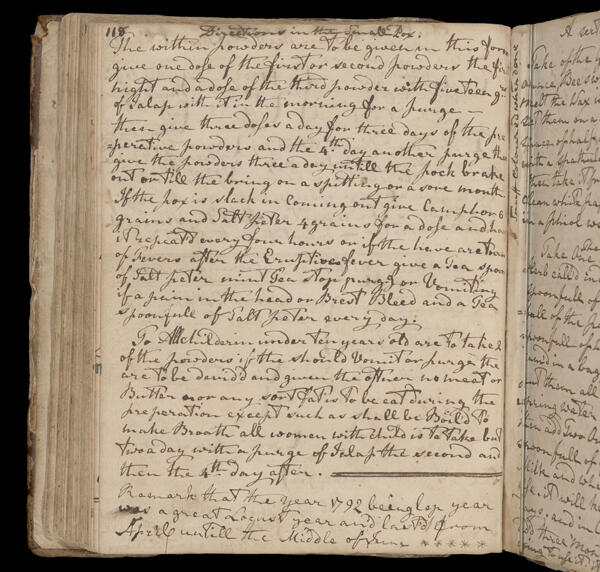 118 Directions in the Small Pox.
The within powders are to be given in this form
give one dose of the first or second powders the
night and a dose of the third powder with fiveteen gr
of Jalap with it in the morning for a purge —
then give three doses a day for three days of the pre
=perative powders and the 4th day another purge
give the powders three a day untill the pock brake
out or till the bring on a spitting or a sore mouth
If the pox is slack in coming out give Camphor 6
grains and Salt Peter 4 grains for a dose and
it Repeatd every four hours or if the have are
of Fevers after the Eruptives fever give a Tea spoon
of Salt peter mint Tea stop purgs or Vomiting
if a pain in the head or Brest Bleed and a Tea
spoonfull of Salt peter every day:
To All childern under ten years old are to take 2
of the powders if the should Vomit or purge the
are to be devid'd and given the oftner no meat or
Butter nor any sort fat is to be eat during the
preperation except such as shall be Boild to
make Broath all women with child is to take but
two a day with a purge of Jalap the second and
then the 4th day after.
Remark that the year 1792 being lep year
was a great Locust year and last'd from
Apr 26 untill the Middle of June * * * * *
A
Take of the
ounce, Bees
melt the Wax
set them on a
with a
then take it
clean white
Take one
spoonfull of
full of the
spoonfull of
and in a bag
them all
spring water
add Two
spoonfull of
Milk and
it will
days. and in